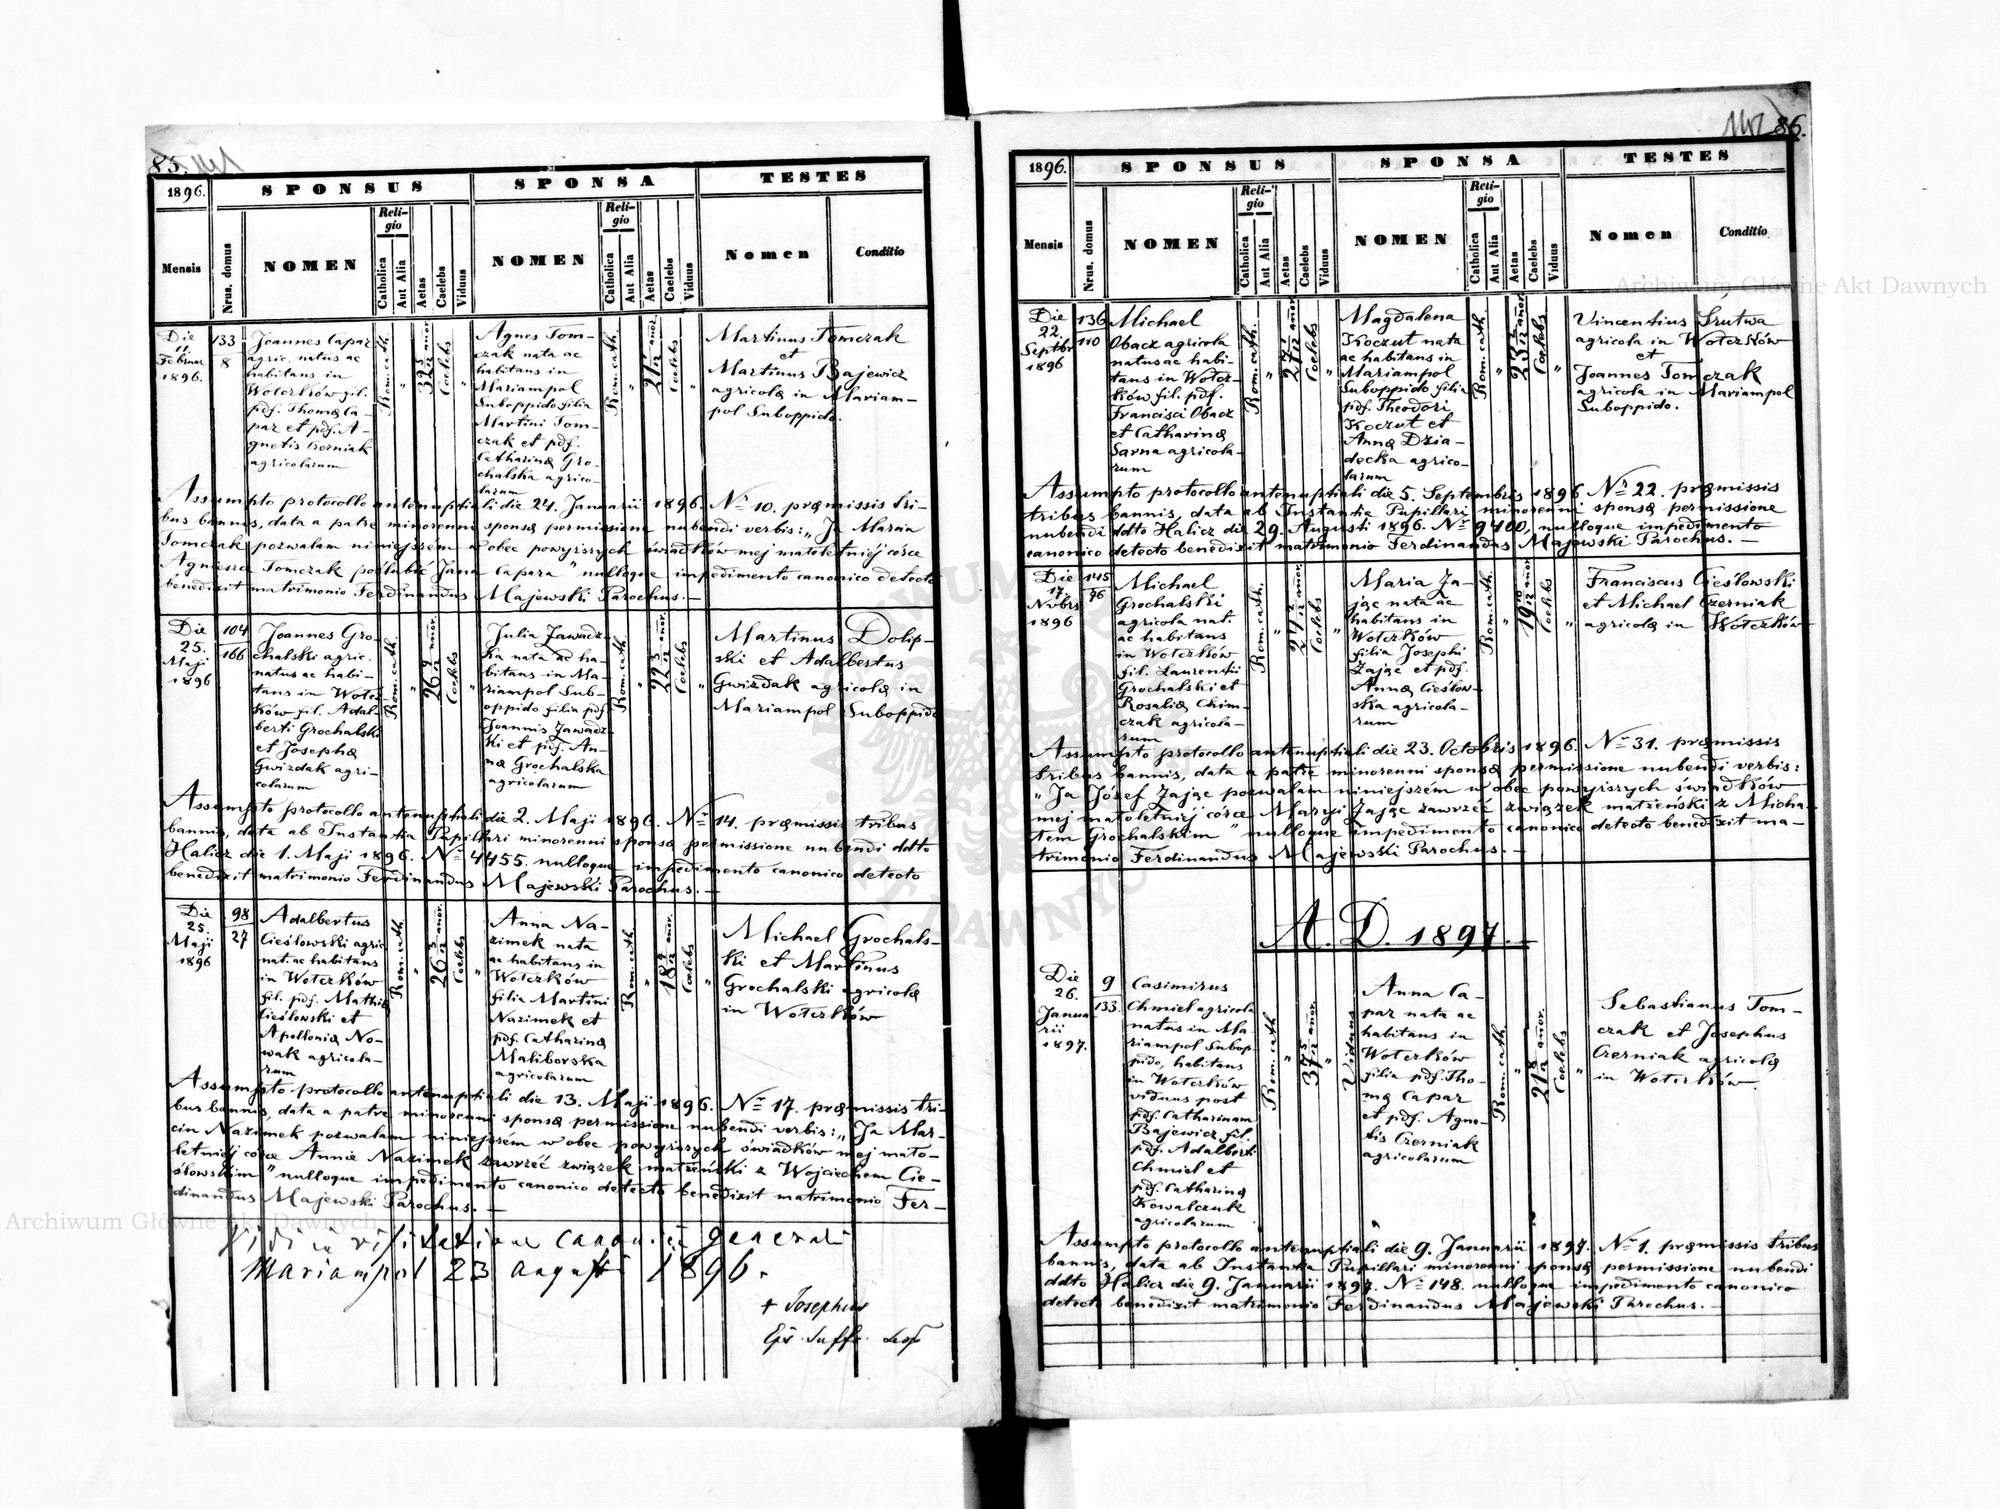 85.
1896.
SPONSUS
SPONSA
TESTES
Mensis
Nrus. domus
NOMEN
Religio
Catholica
Aut Alia
Aetas
Caelebs
Viduus
NOMEN
Religio
Catholica
Aut Alia
Aetas
Caelebs
Viduus
Nomen
Conditio
Die
11
Februar
1896.
133
8
Joannes Capar
agric. natus ac
habitans in
Wołczków fil.
pdf. Thomæ Ca-
par et pdf. A-
gnetis Czerniak
agricolarum
Rom. cath.
"
Coelebs
"
Agnes Tom-
czak nata ac
habitans in
Mariampol
Suboppido filia
Martini Tom-
czak et pdf.
Catharinæ Gro-
chalska agrico-
larum
Rom. cath.
"
Coelebs
"
Martinus Tomczak
et
Martinus Bajewicz
agricolæ in Mariam-
pol Suboppido.
Assumpto protocollo antenuptiali die 24. Januarii 1896. Nr. 10. præmissis tri-
bus bannis, data a patre minorenni sponsæ permissione nubendi verbis: „Ja Marcin
Tomczak pozwalam niniejszém w obec powyższych świadków mej małoletniéj córce
Agnieszce Tomczak poślubić Jana Capara" nulloque impedimento canonico detecto
benedixit matrimonio Ferdinandus Majewski Parochus. —
Die
25.
Maji
1896
104
166
Joannes Gro-
chalski agric.
natus ac habi-
tans in Wołcz-
ków fil. Adal-
berti Grochalski
et Josephæ
Gwizdak agri-
colarum
Rom. cath.
"
26 9/12 anor.
Coelebs
"
Julia Zawadz-
ka nata ac ha-
bitans in Ma-
riampol Sub-
oppido filia pdf.
Joannis Zawadz-
ki et pdf. An-
næ Grochalska
agricolarum
Rom. cath.
"
22 3/12 anor.
Coelebs
"
Martinus Dolip-
ski et Adalbertus
Gwizdak agricolæ in
Mariampol Suboppido
Assumpto protocollo antenuptiali die 2. Maji 1896. Nr. 14. præmissis tribus
bannis, data ab Instantia Pupillari minorenni sponsæ permissione nubendi ddto
Halicz die 1. Maji 1896. Nr. 4455. nulloque impedimento canonico detecto
benedixit matrimonio Ferdinandus Majewski Parochus. —
Die
25.
Maji
1896
98
27
Adalbertus
Cieślowski agric.
nat. ac habitans
in Wołczków
fil. pdf. Mathiæ
Cieślowski et
Apolloniæ No-
wak agricola-
rum
Rom. cath.
"
26 3/12 anor.
Coelebs
"
Anna Na-
zimek nata
ac habitans in
Wołczków
filia Martini
Nazimek et
pdf. Catharinæ
Maliborska
agricolarum
Rom. cath.
"
Coelebs
"
Michael Grochals-
ki et Martinus
Grochalski agricolæ
in Wołczków
Assumpto protocollo antenuptiali die 13. Maji 1896. Nr. 17. præmissis tri-
bus bannis, data a patre minorenni sponsæ permissione nubendi verbis: „Ja Mar-
cin Nazimek pozwalam niniejszém w obec powyższych świadków mej mało-
letniéj córce Annie Nazimek zawrzéć związek małżeński z Wojciechem Cie-
ślowskim" nulloque impedimento canonico detecto benedixit matrimonio Fer-
dinandus Majewski Parochus. —
Vidi in visitatione canonica generali
Mariampol 23 augusti 1896.
+ Josephus
Eps. Suffr. Leop
86.
1896.
SPONSUS
SPONSA
TESTES
Mensis
Nrus. domus
NOMEN
Religio
Catholica
Aut Alia
Aetas
Caelebs
Viduus
NOMEN
Religio
Catholica
Aut Alia
Aetas
Caelebs
Viduus
Nomen
Conditio
Die
22.
Septbr
1896
136
110
Michael
Obacz agricola
natus ac habi-
tans in Wołcz-
ków fil. pdf.
Francisci Obacz
et Catharinæ
Sarna agricola-
rum
Rom. cath.
"
Coelebs
"
Magdalena
Koczut nata
ac habitans in
Mariampol
Suboppido filia
pdf. Theodori
Koczut et
Annæ Dzia-
decka agrico-
larum
Rom. cath.
"
Coelebs
"
Vincentius Srutwa
agricola in Wołczków
et
Joannes Tomczak
agricola in Mariampol
Suboppido.
Assumpto protocollo antenuptiali die 5. Septembris 1896 Nr. 22. præmissis
tribus bannis, data ab Instantia Pupillari minorenni sponsæ permissione
nubendi ddto Halicz die 29. Augusti 1896. Nr. 9400, nulloque impedimento
canonico detecto benedixit matrimonio Ferdinandus Majewski Parochus. —
Die
17.
Nvbrs
1896
145
76
Michael
Grochalski
agricola nat.
ac habitans
in Wołczków
fil. Laurentii
Grochalski et
Rosaliæ Chim-
czak agricola-
rum
Rom. cath.
"
Coelebs
"
Maria Za-
jąc nata ac
habitans in
Wołczków
filia Josephi
Zając et pdf.
Annæ Cieślow-
ska agricola-
rum
Rom. cath.
"
19 10/12 anor.
Coelebs
"
Franciscus Cieślowski
et Michael Czerniak
agricolæ in Wołczków
Assumpto protocollo antenuptiali die 23. Octobris 1896. Nr. 31. præmissis
tribus bannis, data a patre minorenni sponsæ permissione nubendi verbis:
„Ja Józef Zając pozwalam niniejszém w obec powyższych świadków
mej małoletniéj córce Maryi Zając zawrzéć związek małżeński z Micha-
łem Grochalskim" nulloque impedimento canonico detecto benedixit ma-
trimonio Ferdinandus Majewski Parochus. —
A. D. 1897.
Die
26.
Janua
rii
1897.
9
133.
Casimirus
Chmiel agricola
natus in Ma-
riampol Subop-
pido, habitans
in Wołczków
viduus post
pdf. Catharinam
Bajewicz fil.
pdf. Adalberti
Chmiel et
pdf. Catharinæ
Kowalczuk
agricolarum
Rom. cath.
"
37 5/12 anor.
"
Viduus
Anna Ca-
par nata ac
habitans in
Wołczków
filia pdf. Tho-
mæ Capar
et pdf. Agne-
tis Czerniak
agricolarum
Rom. cath.
"
21 8/12 anor.
Coelebs
"
Sebastianus Tom-
czak et Josephus
Czerniak agricolæ
in Wołczków.
Assumpto protocollo antenuptiali die 9. Januarii 1897. Nr. 1. præmissis tribus
bannis, data ab Instantia Pupillari minorenni sponsæ permissione nubendi
ddto Halicz die 9. Januarii 1897. Nr. 148. nulloque impedimento canonico
detecto benedixit matrimonio Ferdinandus Majewski Parochus. —
Archiwum Główne Akt Dawnych
Archiwum Główne Akt Dawnych